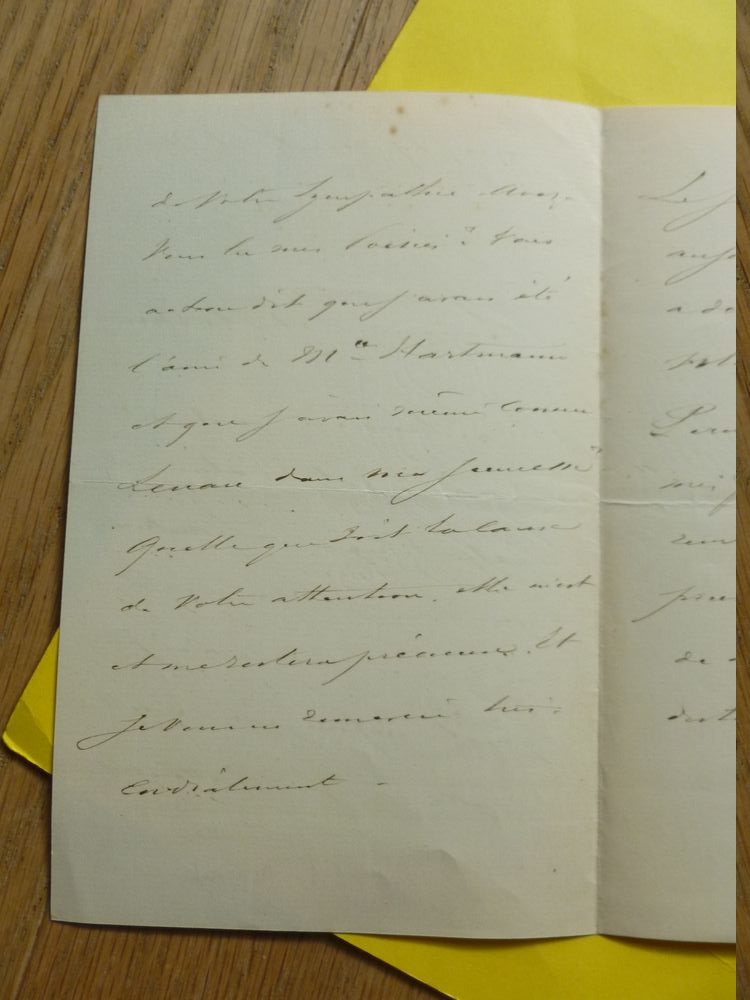 de votre sympathie. Avez
vous lu mes Poésies ? Vous
a-t-on dit que j'avais été
l'ami de M^r Hartmann
et que j'avais même connu
Lenau dans ma jeunesse ?
Quelle que soit la cause
de votre attention, elle m'est
et me restera précieuse. Et
je vous en remercie très
cordialement -
Le
a